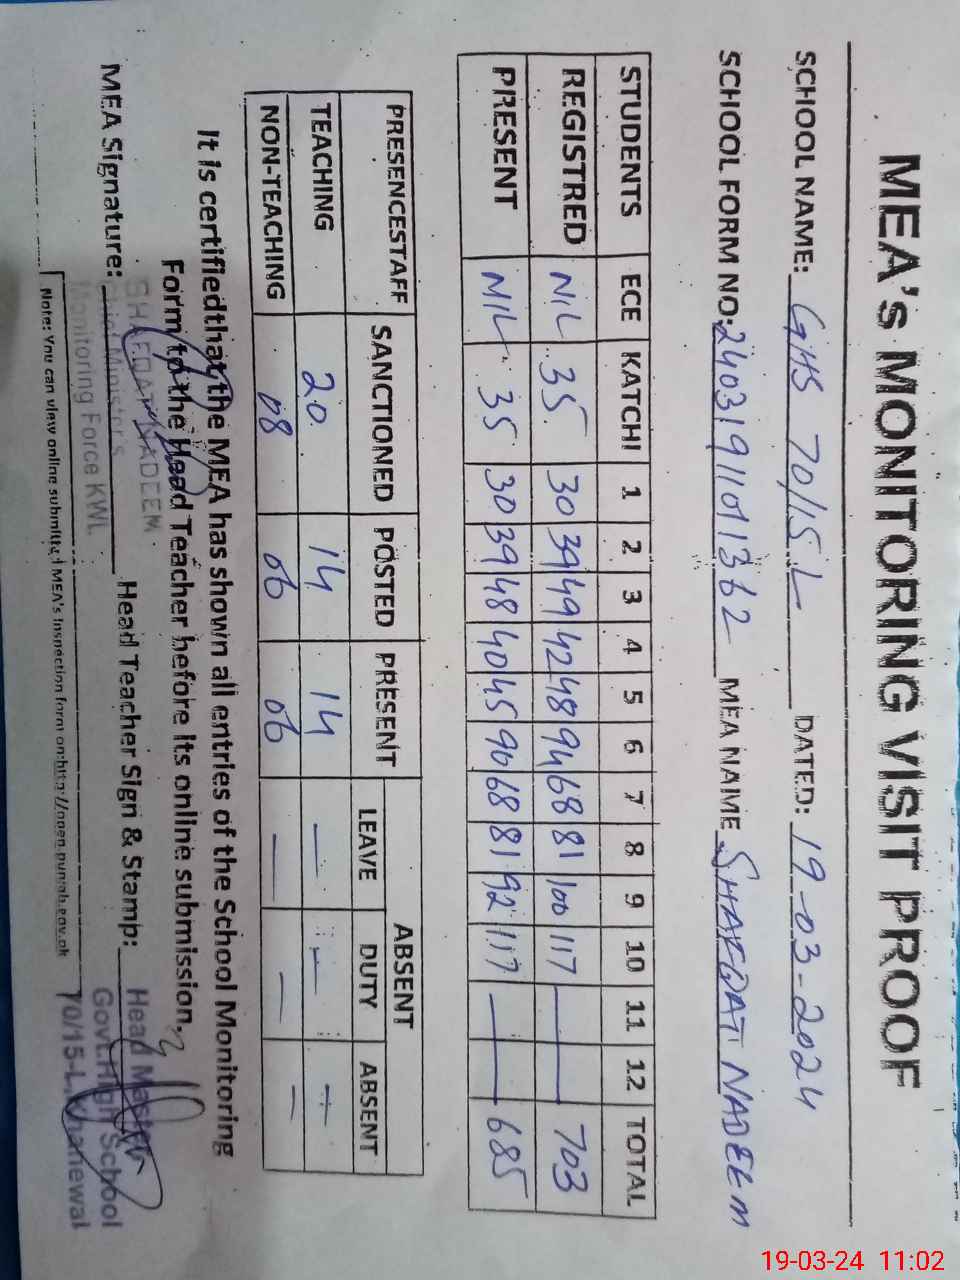 MEA's MONITORING VISIT PROOF
SCHOOL NAME: GHS 70/15 L DATED: 19-03-2024
SCHOOL FORM NO: 24031911011362 MEA NAME SHAFQAT NADEEM
STUDENTS ECE KATCHI 1 2 3 4 5 6 7 8 9 10 11 12 TOTAL
REGISTRED NIL 35 30 39 49 42 48 94 68 81 100 117 — — 703
PRESENT NIL 35 30 39 48 40 45 90 68 81 92 117 — — 685
PRESENCESTAFF SANCTIONED POSTED PRESENT ABSENT
LEAVE DUTY ABSENT
TEACHING 20 14 14 — — —
NON-TEACHING 08 06 06 — — —
It is certifiedthat the MEA has shown all entries of the School Monitoring
Form to the Head Teacher before its online submission.
MEA Signature: Head Teacher Sign & Stamp:
SHAFQAT NADEEM
Chief Minister's
Monitoring Force KWL
Head Master
Govt.High School
70/15-L Khanewal
Note: You can view online submitted MEA's Inspection form on:http://open.punjab.gov.pk
19-03-24 11:02